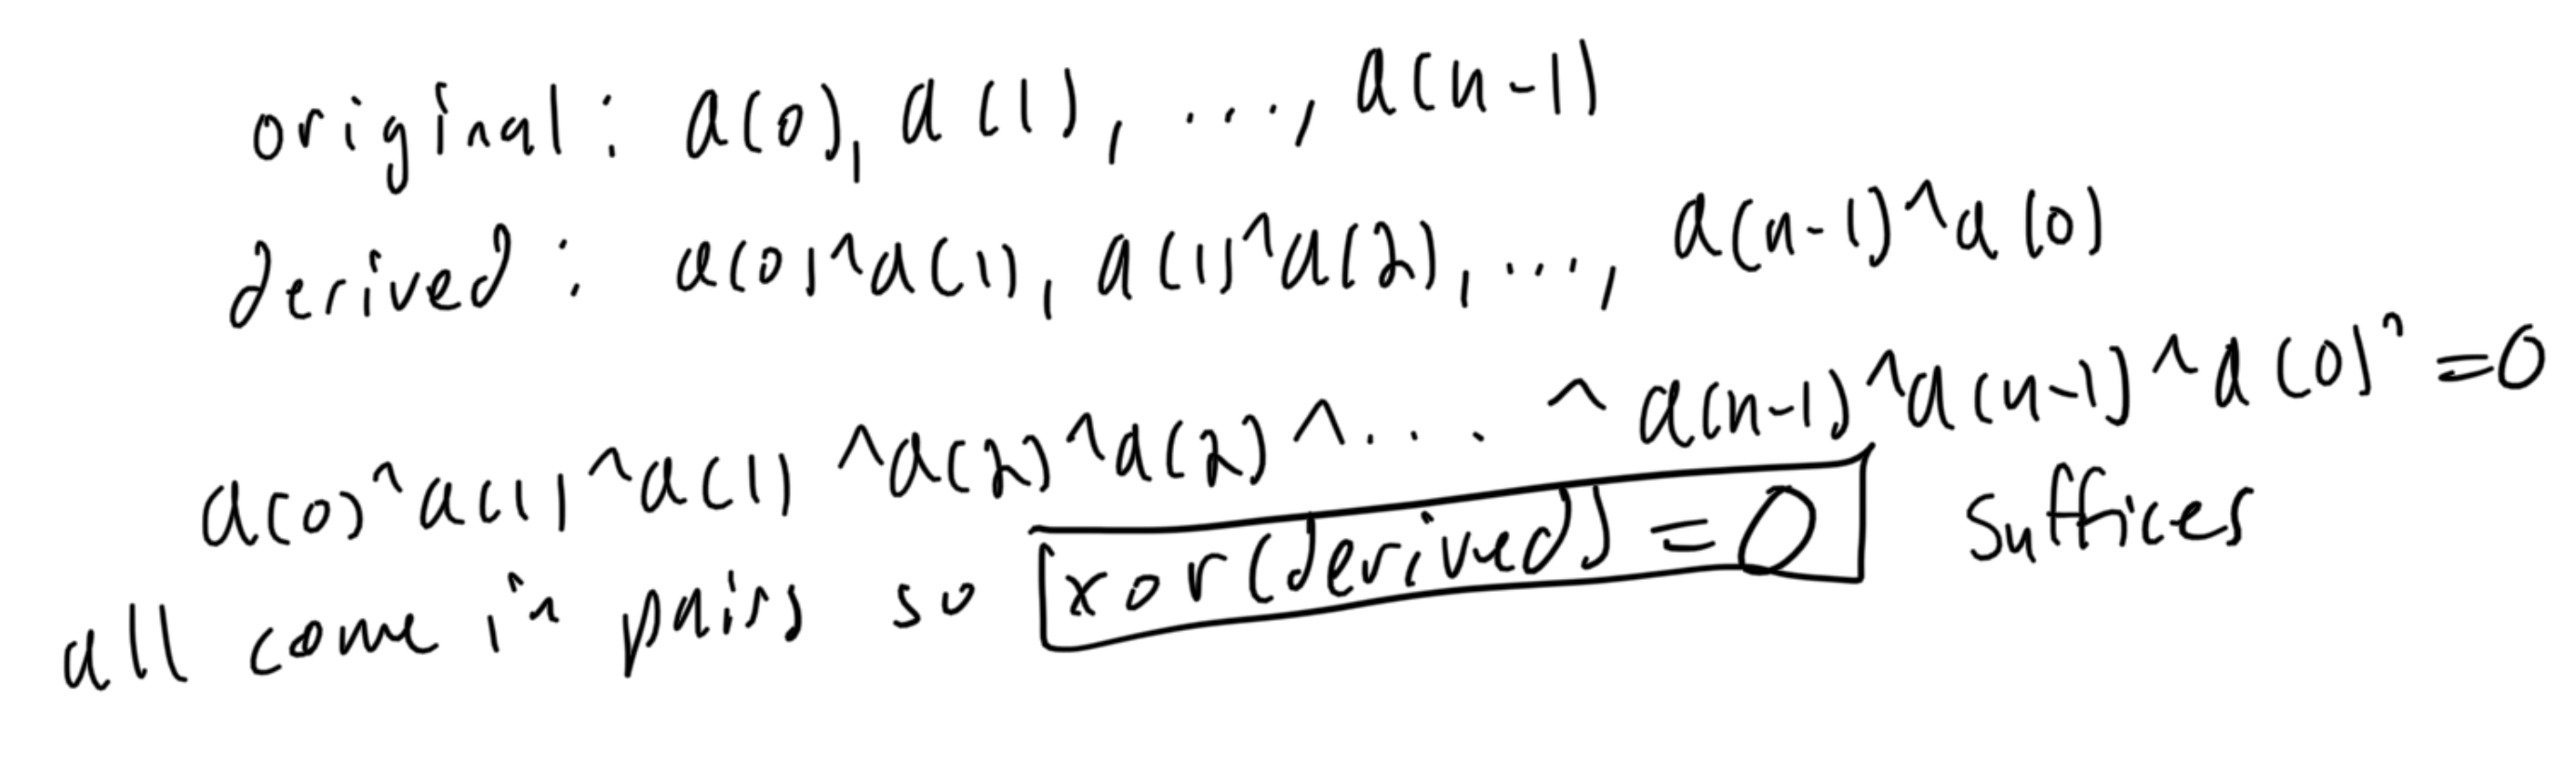 original: a(0), a(1), ..., a(n-1)
derived: a(0)^a(1), a(1)^a(2), ..., a(n-1)^a(0)
a(0)^a(1)^a(1)^a(2)^a(2)^...^a(n-1)^a(n-1)^a(0)^=0
all come in pairs so xor(derived)=0 suffices